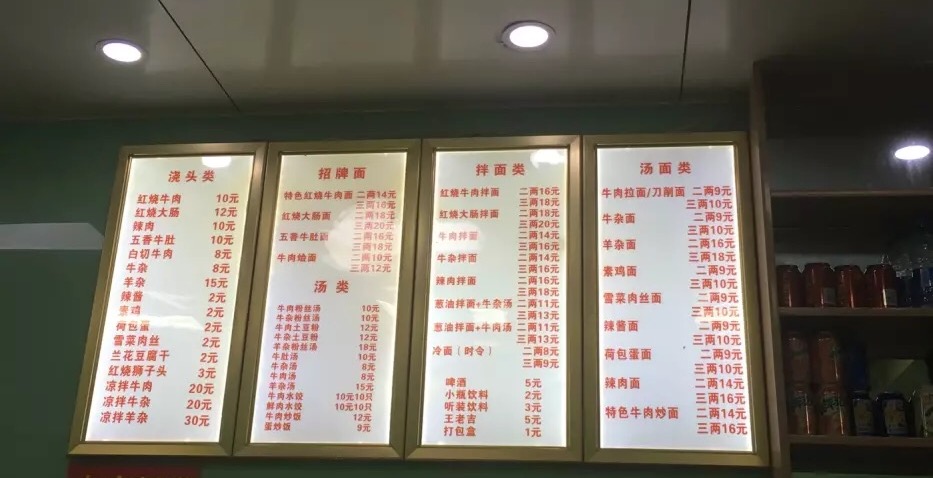 浇头类
红烧牛肉 10元
红烧大肠 12元
辣肉 10元
五香牛肚 10元
白切牛肉 8元
牛杂 8元
羊杂 15元
辣酱 2元
素鸡 2元
荷包蛋 2元
雪菜肉丝 2元
兰花豆腐干 2元
红烧狮子头 3元
凉拌牛肉 20元
凉拌牛杂 20元
凉拌羊杂 30元
招牌面
特色红烧牛肉面 二两14元
三两16元
红烧大肠面 二两18元
三两20元
五香牛肚面 二两16元
三两18元
牛肉烩面 二两10元
三两12元
汤类
牛肉粉丝汤 10元
牛杂粉丝汤 10元
牛肉土豆粉 12元
牛杂土豆粉 12元
羊杂粉丝汤 18元
牛肚汤 10元
牛杂汤 8元
牛肉汤 8元
羊杂汤 15元
牛肉水饺 10元10只
鲜肉水饺 10元10只
牛肉炒饭 12元
蛋炒饭 9元
拌面类
红烧牛肉拌面 二两16元
三两18元
红烧大肠拌面 二两18元
三两20元
牛肉拌面 二两14元
三两16元
牛杂拌面 二两14元
三两16元
辣肉拌面 二两16元
三两18元
葱油拌面+牛杂汤 二两11元
三两13元
葱油拌面+牛肉汤 二两11元
三两13元
冷面（时令） 二两8元
三两9元
啤酒 5元
小瓶饮料 2元
听装饮料 3元
王老吉 5元
打包盒 1元
汤面类
牛肉拉面/刀削面 二两9元
三两10元
牛杂面 二两9元
三两10元
羊杂面 二两16元
三两18元
素鸡面 二两9元
三两10元
雪菜肉丝面 二两9元
三两10元
辣酱面 二两9元
三两10元
荷包蛋面 二两9元
三两10元
辣肉面 二两14元
三两16元
特色牛肉炒面 二两14元
三两16元